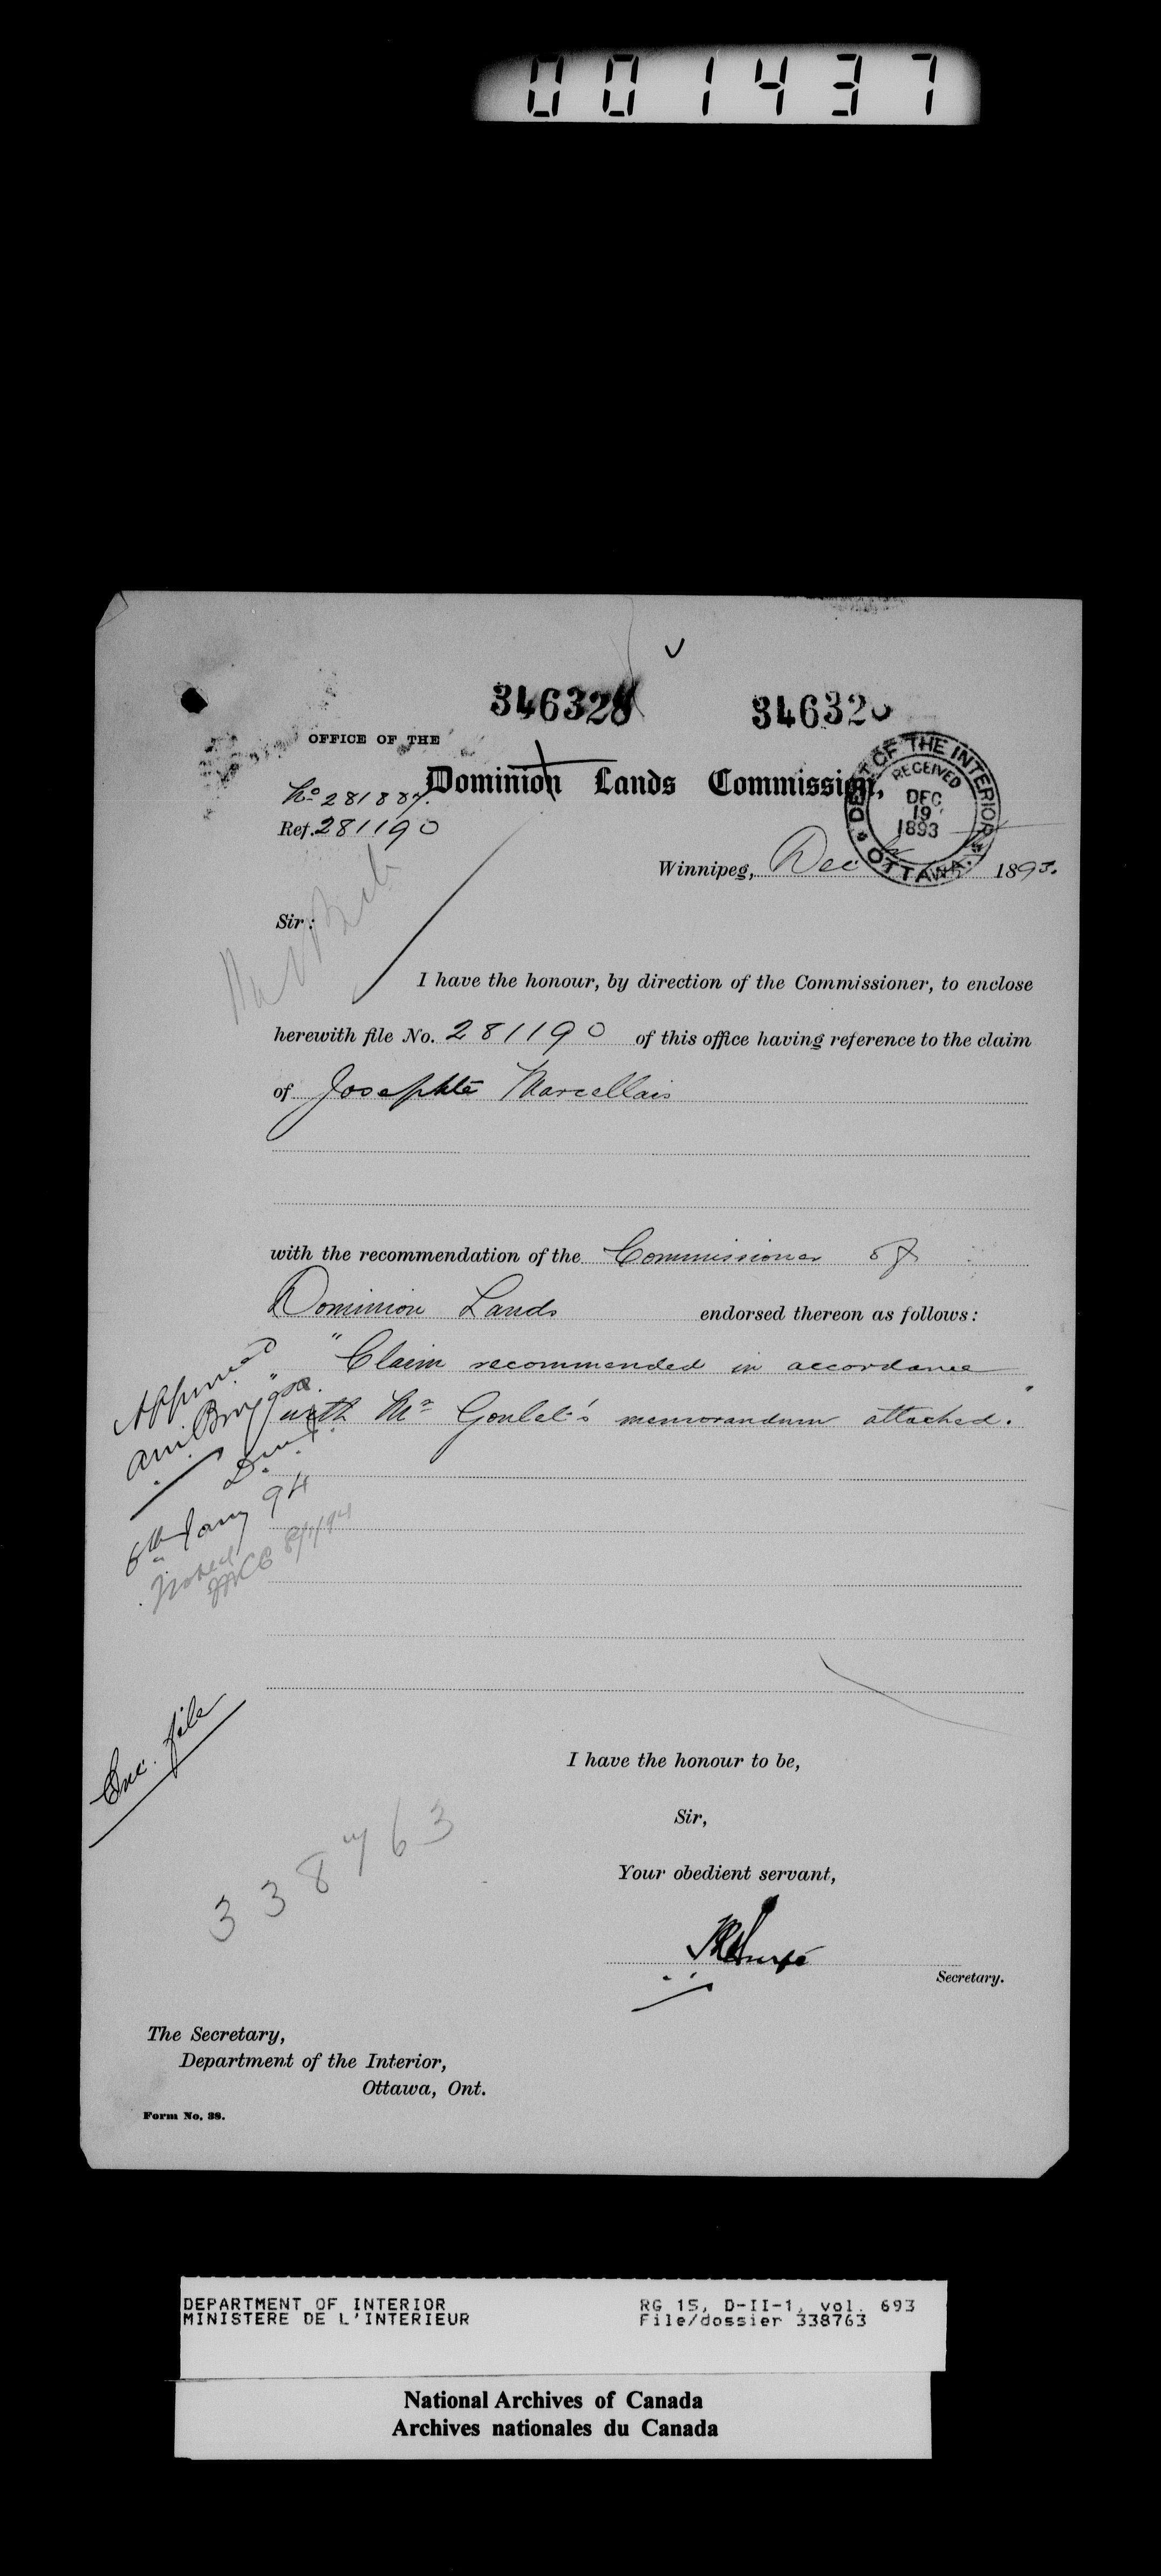 001437
346328 34632
OFFICE OF THE
Dominion Lands Commission,
No 281887.
Ref. 281190
DEPT OF THE INTERIOR
RECEIVED
DEC
19
1893
OTTAWA.
Winnipeg, Dec 1893.
Sir:
I have the honour, by direction of the Commissioner, to enclose
herewith file No. 281190 of this office having reference to the claim
of Josephte Marcellais
with the recommendation of the Commissioner of
Dominion Lands endorsed thereon as follows:
"Claim recommended in accordance
with Mr Goulet's memorandum attached."
Approved
6th Jany 94
Noted
8/1/94
Enc. file
338763
I have the honour to be,
Sir,
Your obedient servant,
Secretary.
The Secretary,
Department of the Interior,
Ottawa, Ont.
Form No. 38.
DEPARTMENT OF INTERIOR
MINISTERE DE L'INTERIEUR
RG 15, D-II-1, vol. 693
File/dossier 338763
National Archives of Canada
Archives nationales du Canada